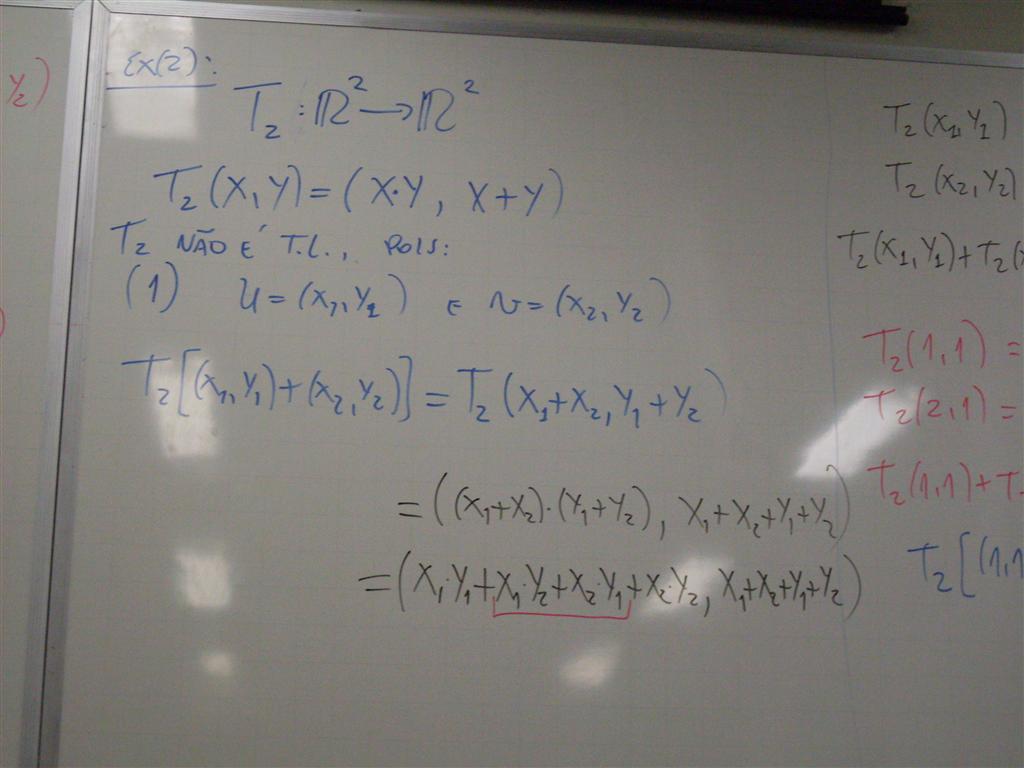 Y₂)
Ex(2):
T₂: ℝ² → ℝ²
T₂(X,Y) = (X·Y, X+Y)
T₂ NÃO É T.L., POIS:
(1) U = (X₁,Y₁) E V = (X₂,Y₂)
T₂[(X₁,Y₁)+(X₂,Y₂)] = T₂(X₁+X₂,Y₁+Y₂)
= ((X₁+X₂)·(Y₁+Y₂), X₁+X₂+Y₁+Y₂)
= (X₁·Y₁+X₁·Y₂+X₂·Y₁+X₂·Y₂, X₁+X₂+Y₁+Y₂)
T₂(X₁,Y₁)
T₂(X₂,Y₂)
T₂(X₁,Y₁)+T₂(X
T₂(1,1) =
T₂(2,1) =
T₂(1,1)+T
T₂[(1,1